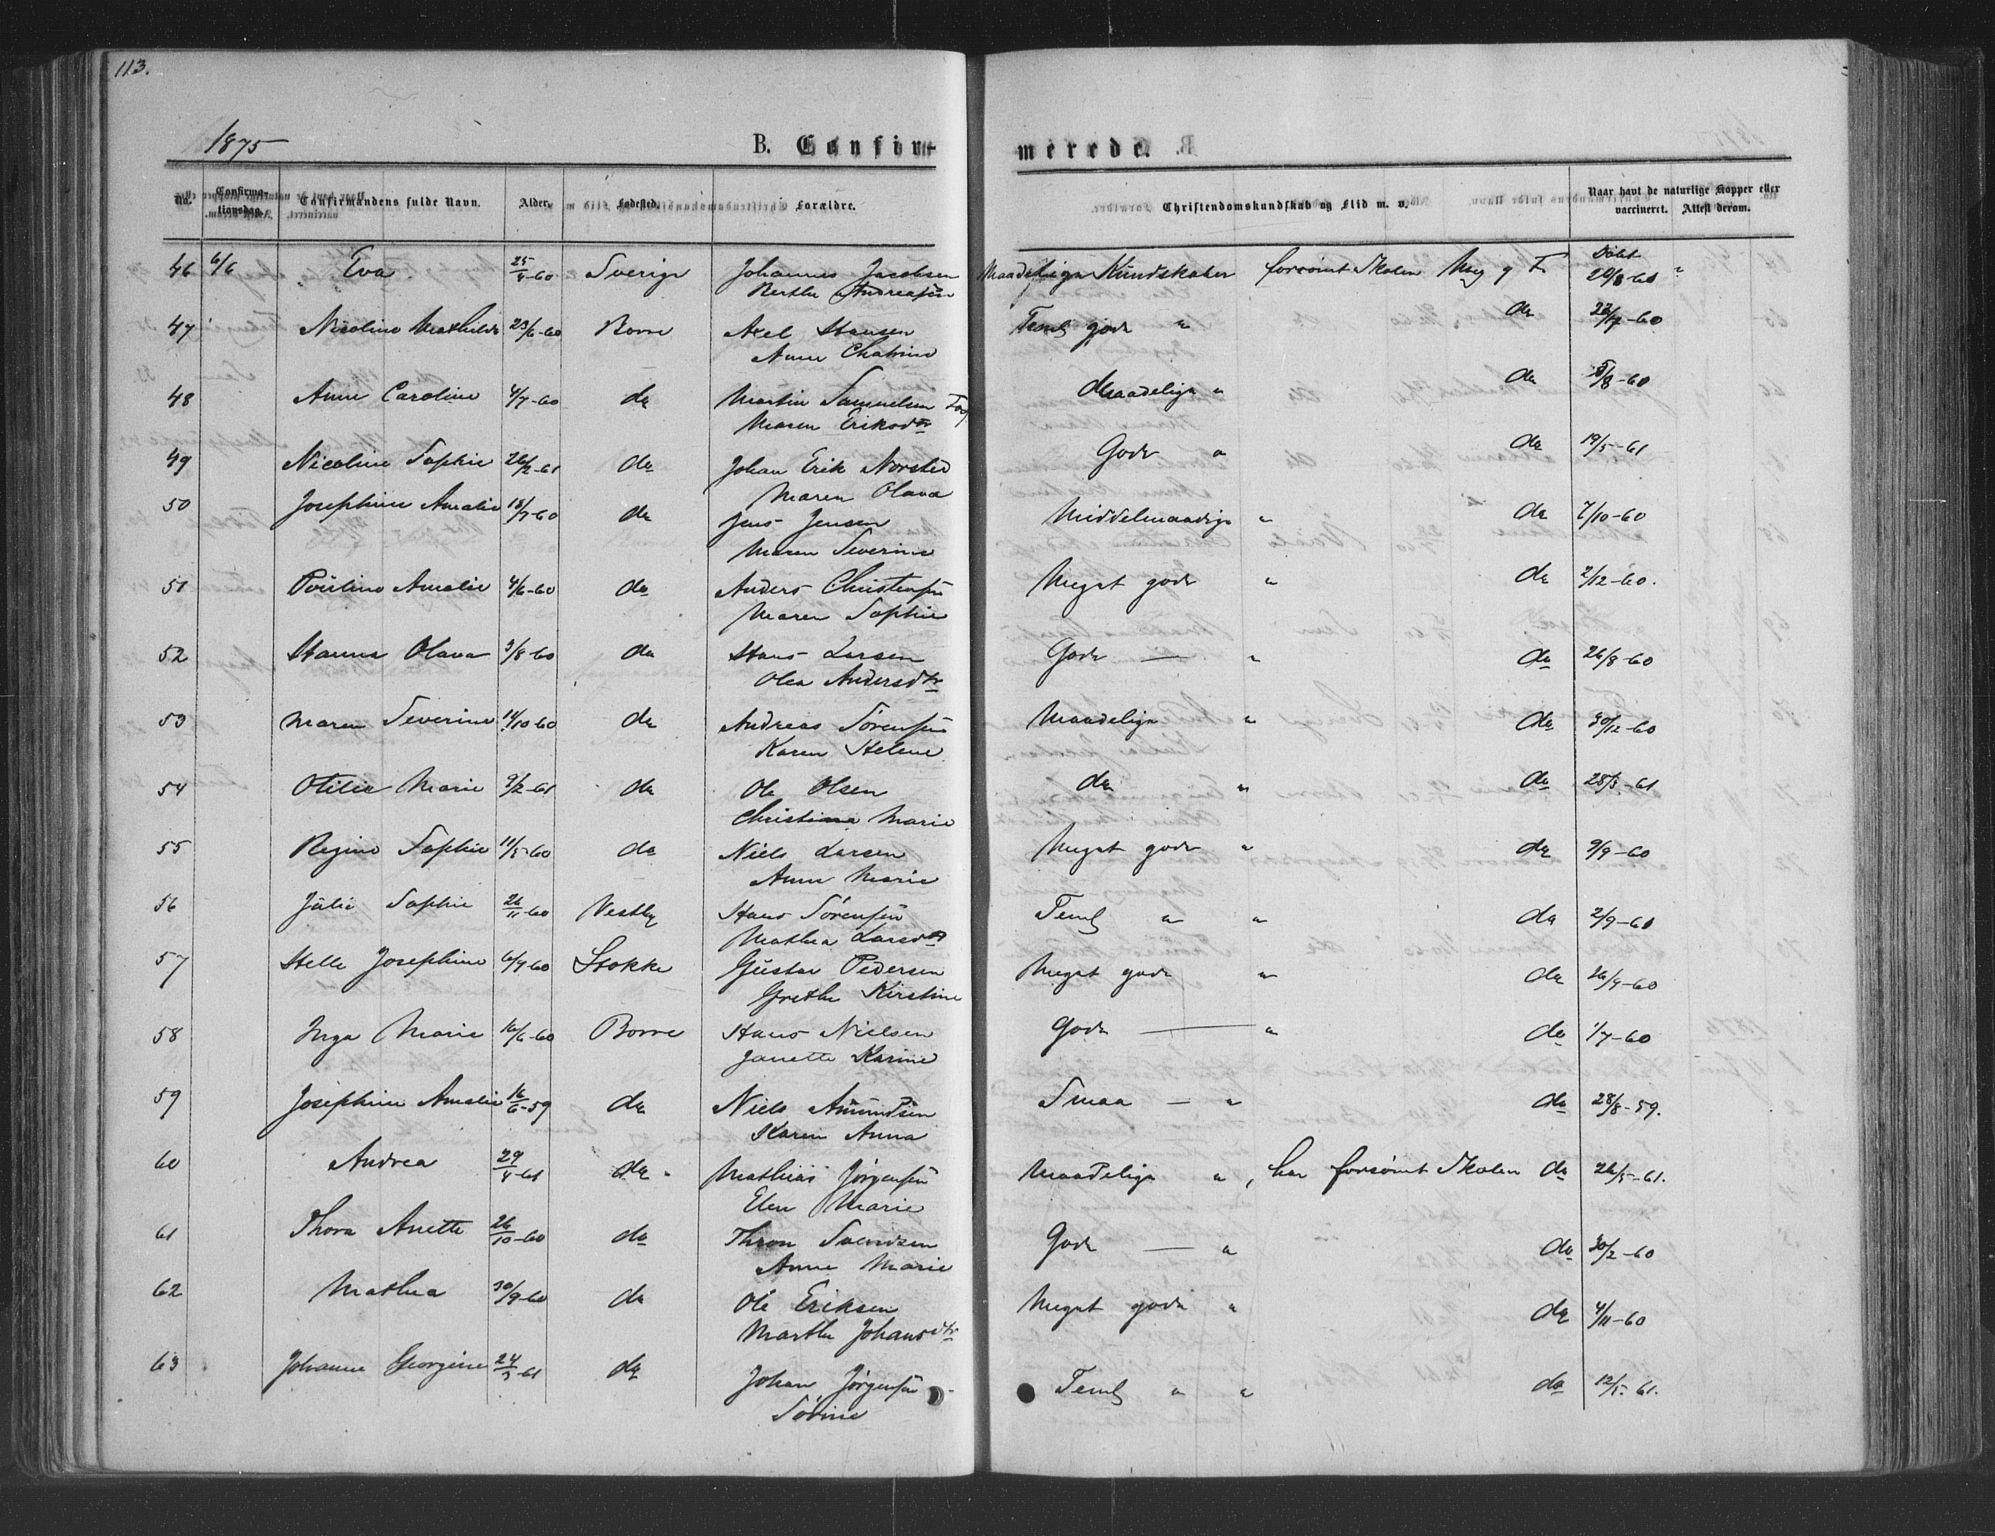 113.
1875 B. Confir- merede.
No. Confirma- tionsdag. Confirmandens fulde Navn. Alder. Fødested. Forældre. Christendomskundskab og Flid m. v. Naar havt de naturlige Kopper eller
vaccineret. Attest derom.
46 6/6 Eva 25/4-60 Sverige Johannes Jacobsen Maadelige Kundskaber forsømt Skolen Meg g F. Døbt
Berthe Andreasen 20/8-60 "
47 Nicoline Mathilde 23/6-60 Borre Axel Hansen Teml. gode " do 22/7-60
Anne Chatrine
48 Anne Caroline 4/7-60 do Martin Samuelsen Maadelige " do 5/8-60
Maren Eriksdtr
49 Nicoline Sophie 26/2-61 do Johan Erik Norsted Gode " do 19/5-61
Maren Olava
50 Josephine Amalie 18/7-60 do Jens Jensen Middelmaadige " do 7/10-60
Maren Severine
51 Pauline Amalie 4/6-60 do Anders Christensen Meget gode " do 2/12-60.
Maren Sophie
52 Hanna Olava 3/8-60 do Hans Larsen Gode — " do 26/8-60
Olea Andersdtr
53 Maren Severine 14/10-60 do Andreas Sørensen Maadelige " do 30/12-60
Karen Helene
54 Otilie Marie 9/2-61 do Ole Olsen do " do 28/3-61
Christiane Marie
55 Regine Sophie 11/5-60 do Niels Larsen Meget gode " do 9/9-60
Anne Marie
56 Julie Sophie 26/11-60 Vestby Hans Sørensen Teml. " " do 2/9-60
Mathea Larsdtr
57 Helle Josephine 6/9-60 Stokke Gustav Pedersen Meget gode " do 26/9-60
Grethe Kirstine
58 Inga Marie 16/6-60 Borre Hans Nielsen Gode — " do 1/7-60
Janette Karine
59 Josephine Amalie 16/6-59 do Niels Amundsen Smaa — " do 28/8-59.
Karen Anna
60 Andrea 29/4-61 do " Mathias Jørgensen Maadelige " , har forsømt Skolen do 26/5-61.
Elen Marie
61 Thora Anette 26/10-60 do Thron Svendsen Gode — " do 30/2-60
Anne Marie
62 Mathea 30/9-60 do Ole Eriksen Meget gode " do 4/11-60
Marthe Johansdtr
63 Johanne Georgine 24/3-61 do Johan Jørgensen Teml. " " do 12/5-61.
Sørine